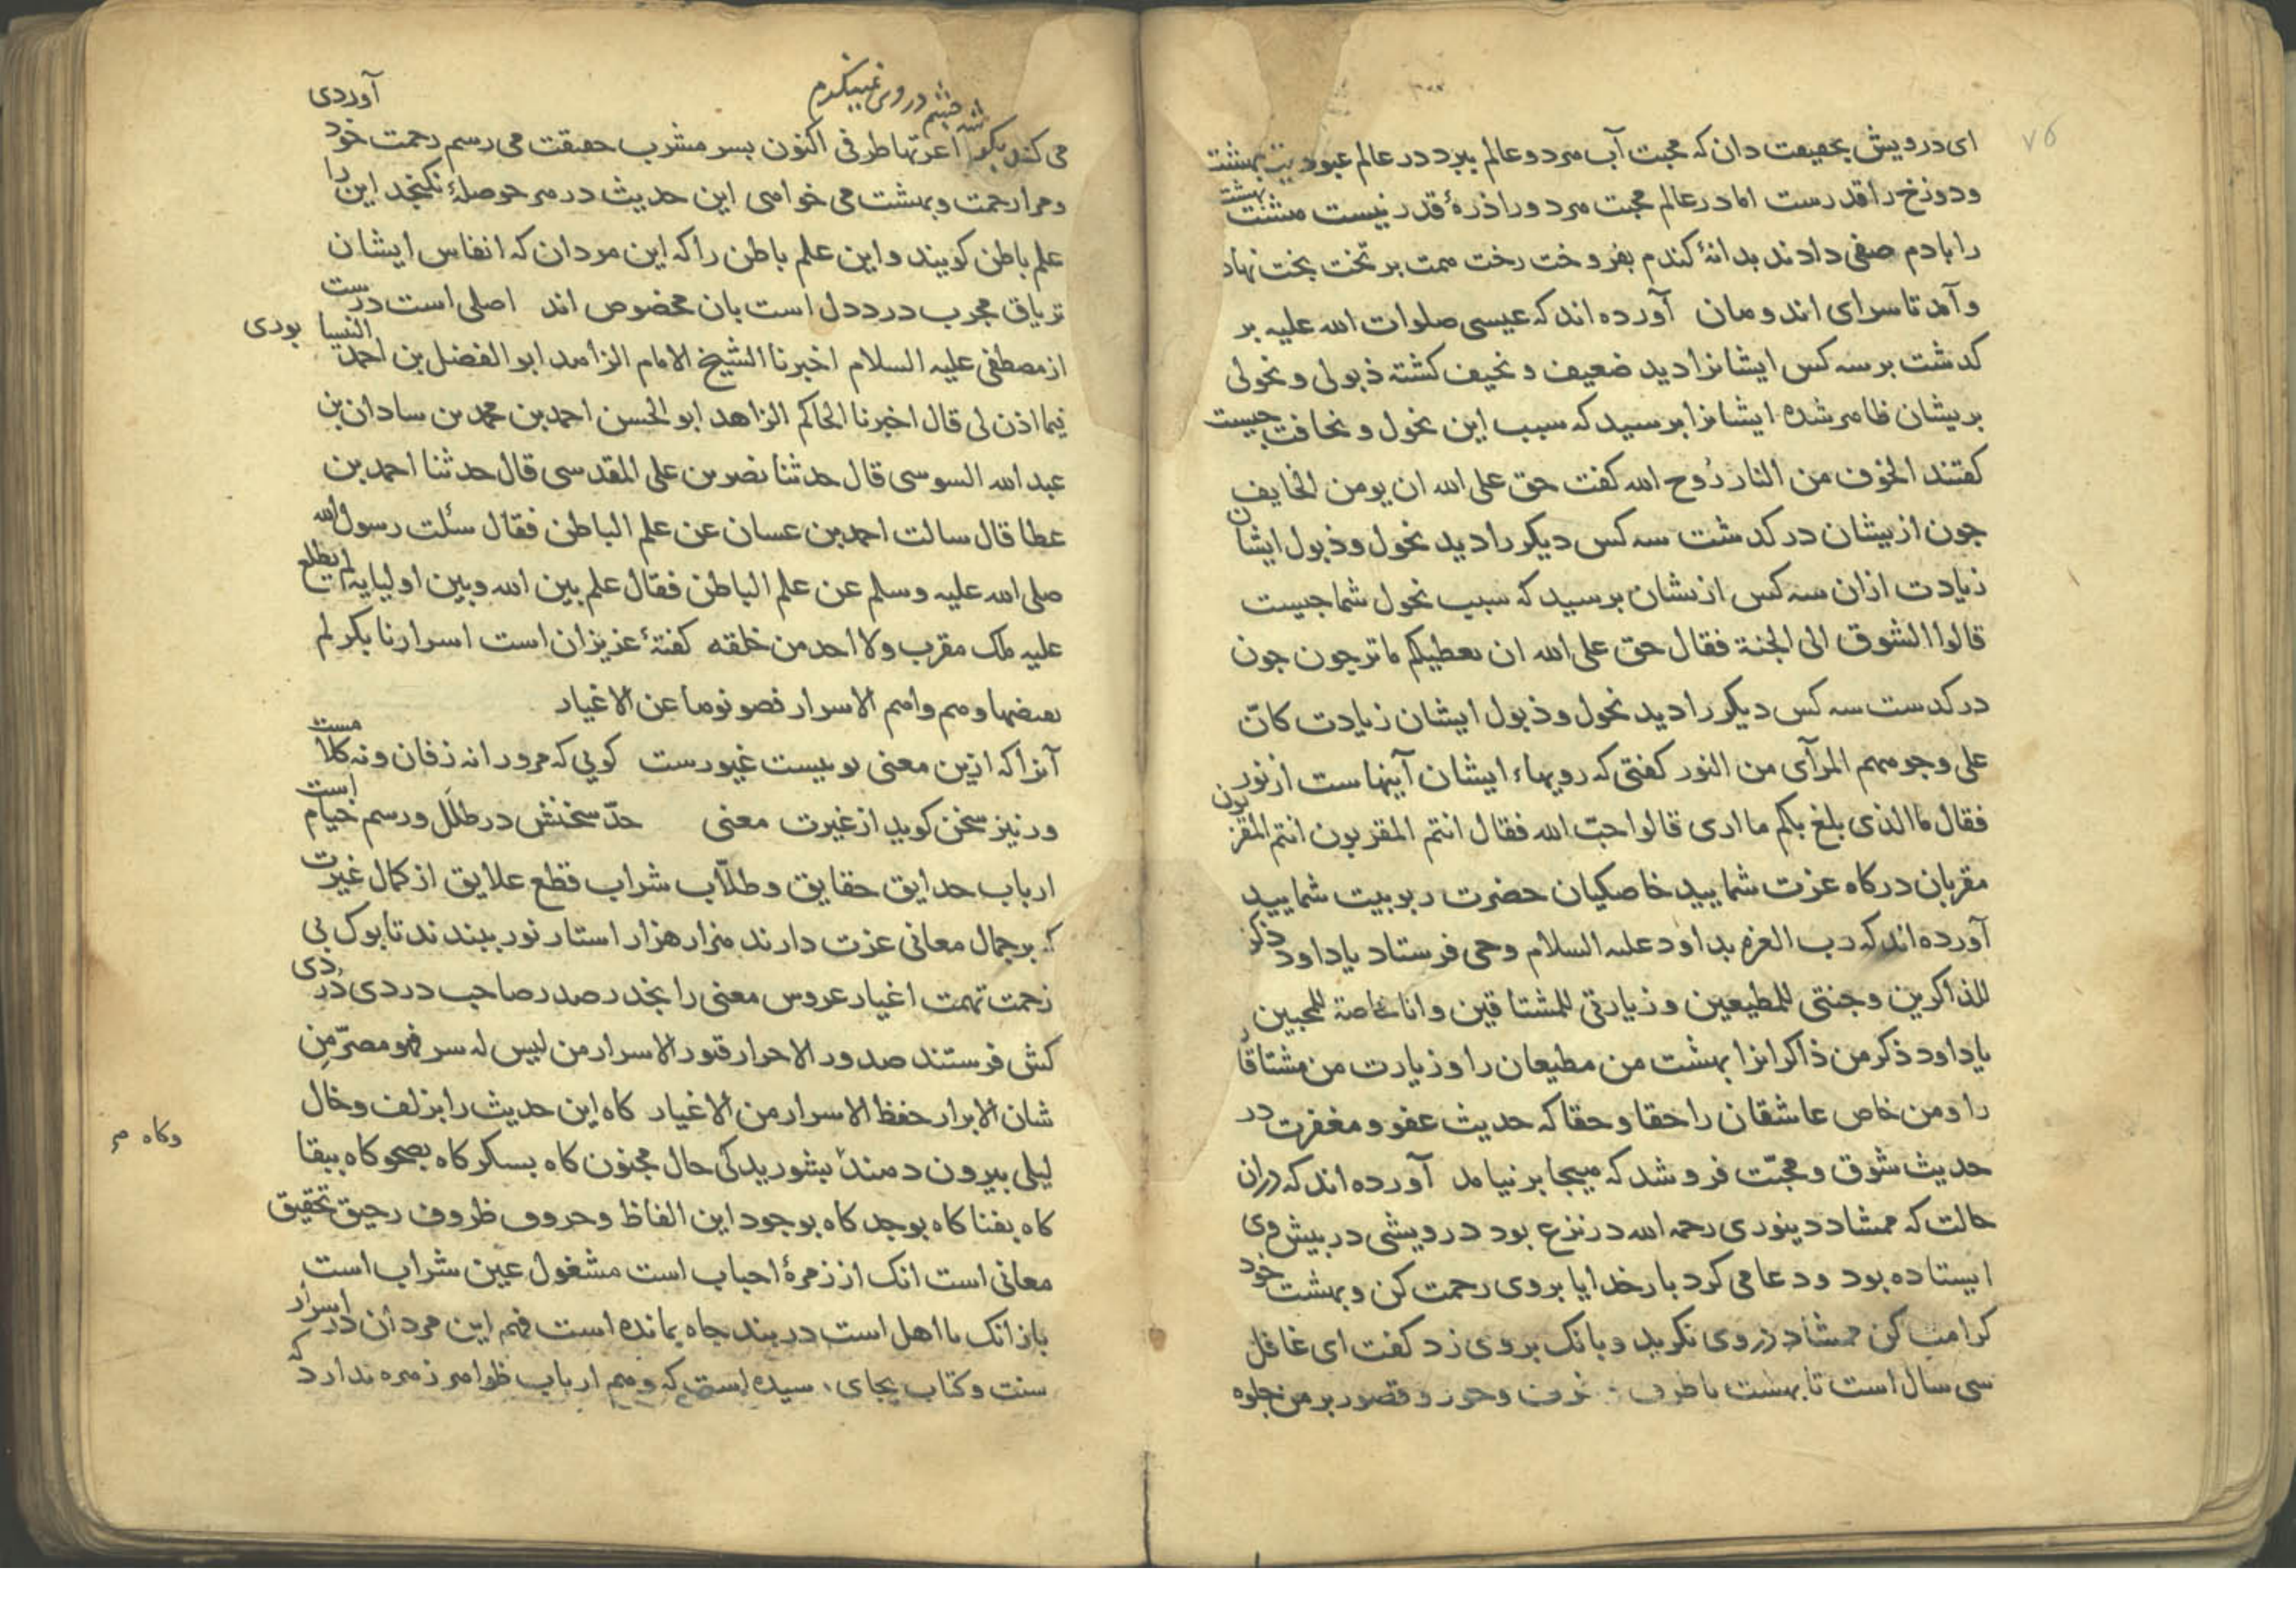 ۷۵
ای درویش بحقیقت دان که محبت آب هر دو عالم ببرد در عالم عبودیت بهشت
و دوزخ را قدرست اما در عالم محبت هر دو را ذرهٔ قدر نیست هشت بهشت
را بادم صفی دادند بدانهٔ کندم بفروخت رخت همت بر تخت بخت نهاد
و آمد تا سرای اندوهان آورده اند که عیسی صلوات الله علیه بر
کدشت بر سه کس ایشانرا دید ضعیف و نحیف کشته ذبولی و نحولی
بریشان ظاهر شده ایشانرا برسید که سبب این نحول و نحافت جیست
کفتند الخوف من النار رُوح الله کفت حق علی الله ان یومن الخایف
جون ازیشان در کدشت سه کس دیکر را دید نحول و ذبول ایشان
زیادت ازان سه کس ازیشان برسید که سبب نحول شما جیست
قالوا الشوق الی الجنة فقال حق علی الله ان یعطیکم ما ترجون جون
در کدست سه کس دیکر را دید نحول و ذبول ایشان زیادت کانّ
علی وجوههم المرآی من النور کفتی که رویهاء ایشان آینهاست از نور
فقال ما الذی بلغ بکم ما اری قالوا حبّ الله فقال انتم المقربون انتم المقربون
مقربان درکاه عزت شمایید خاصکیان حضرت ربوبیت شمایید
آورده اند که رب العزه بداود علیه السلام وحی فرستاد یاداود ذکری
للذاکرین و جنتی للمطیعین و زیارتی للمشتاقین و انا خاصة للمحبین
یاداود ذکر من ذاکرانرا بهشت من مطیعان را و زیارت من مشتاقان
را و من خاص عاشقان را حقا و حقا که حدیث عفو و مغفرت در
حدیث شوق و محبّت فرو شد که هیجا بر نیامد آورده اند که دران
حالت که ممشاد دینوری رحمه الله در نزع بود درویشی در بیش وی
ایستاده بود و دعا می کرد بار خدایا بروی رحمت کن و بهشت خود
کرامت کن ممشاد در وی نکرید و بانک بروی زد کفت ای غافل
سی سال است تا بهشت با طرف و غرف و حور و قصور بر من جلوه
می کند بکوشه جشم در وی ننکرم آوردی
اکنون بسر مشرب حقیقت می رسم رحمت خود
و مرا رحمت و بهشت می خواهی این حدیث در هر حوصلهٔ نکنجد این را
علم باطن کویند و این علم باطن را که این مردان که انفاس ایشان
تریاق مجرب درد دل است بان مخصوص اند اصلی است درست
از مصطفی علیه السلام اخبرنا الشیخ الامام الزاهد ابو الفضل بن احمد النیسابوری
فیما اذن لی قال اخبرنا الحاکم الزاهد ابو الحسن احمد بن محمد بن سادان بن
عبدالله السوسی قال حدثنا نصر بن علی المقدسی قال حدثنا احمد بن
عطا قال سالت احمد بن عسان عن علم الباطن فقال سئلت رسول الله
صلی الله علیه وسلم عن علم الباطن فقال علم بین الله و بین اولیایه لم یطلع
علیه ملک مقرب ولا احد من خلقه کفتهٔ عزیزان است اسرارنا بکر لم
یفضها وهم واهم الاسرار فصونوها عن الاغیار
آنرا که ازین معنی بوییست غیورست کویی که مرورا نه زفان و نه کلامست
ور نیز سخن کوید از غیرت معنی حدّ سخنش در طلل و رسم خیام است
ارباب حدایق حقایق و طلّاب شراب قطع علایق از کمال غیرت
که بر جمال معانی عزت دارند هزار هزار استار نور ببندند تا بوک بی
زحمت تهمت اغیار عروس معنی را بخدر صدر صاحب دردی دردی
کش فرستند صدور الاحرار قبور الاسرار من لیس له سر فهو مصرّ من
شان الابرار حفظ الاسرار من الاغیار کاه این حدیث را بزلف و خال
لیلی بیرون دهند بشوریدکی حال مجنون کاه بسکر کاه بصحو کاه ببقا
وکاه هم
کاه بفنا کاه بوجد کاه بوجود این الفاظ و حروف ظروف رحیق تحقیق
معانی است انک از زمرهٔ احباب است مشغول عین شراب است
باز انک نااهل است در بند جاه بمانده است فهم این مردان در اسرار
سنت و کتاب بجای رسیده است که وهم ارباب ظواهر زهره ندارد که